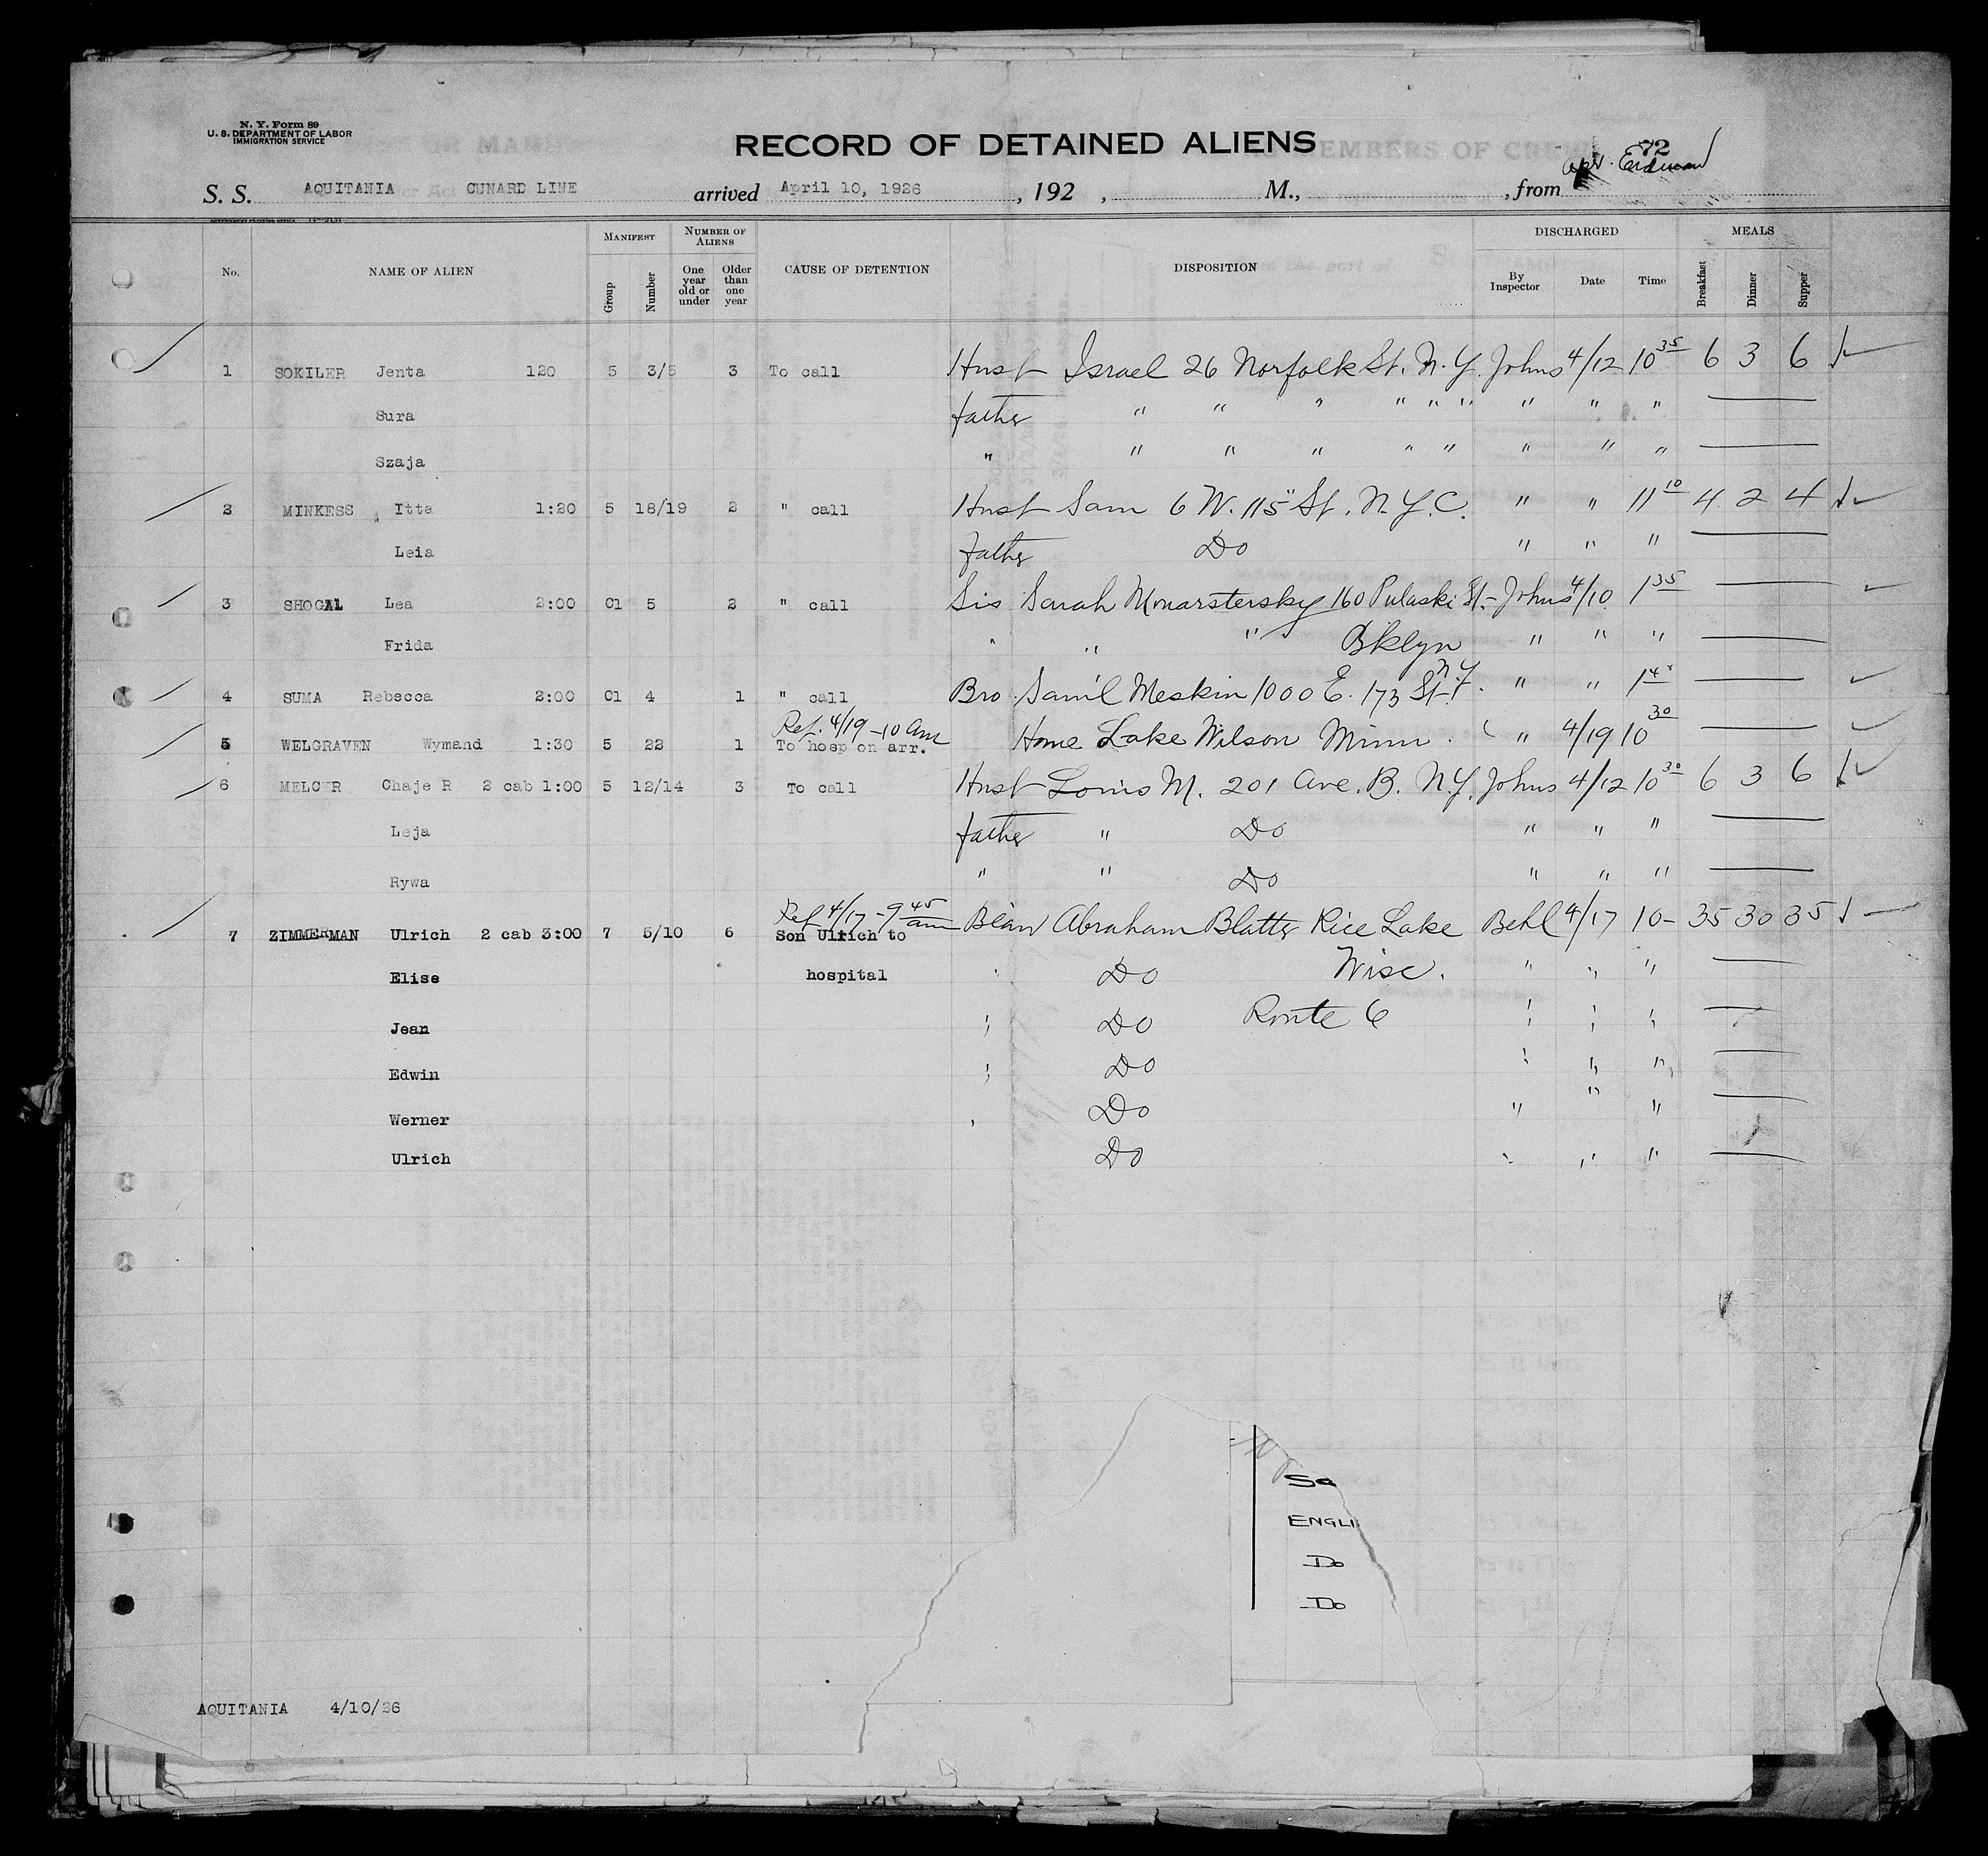 N. Y. Form 89
U. S. DEPARTMENT OF LABOR
IMMIGRATION SERVICE
RECORD OF DETAINED ALIENS
72
S. S. AQUITANIA CUNARD LINE arrived April 10, 1926, 192 , M., , from Erdman
No. NAME OF ALIEN MANIFEST Group Number NUMBER OF ALIENS One year old or under Older than one year CAUSE OF DETENTION DISPOSITION DISCHARGED By Inspector Date Time MEALS Breakfast Dinner Supper
1 SOKILER Jenta 120 5 3/5 3 To call Husb Israel 26 Norfolk St. N.Y. Johns 4/12 10 35 6 3 6
Sura father " " " " " " " " "
Szaja " " " " " " " " "
2 MINKESS Itta 1:20 5 18/19 2 " call Husb Sam 6 W. 115" St. N.Y.C. " " 11 10 4 2 4
Leia father Do " " "
3 SHOGAL Lea 2:00 C1 5 2 " call Sis Sarah Monarstersky 160 Pulaski St. - Johns 4/10 1 35
Frida " " " Bklyn " " "
4 SUMA Rebecca 2:00 C1 4 1 " call Bro Sam'l Meskin 1000 E. 173 St. N.Y. " " 1 4
Ref. 4/19 - 10 am
5 WELGRAVEN Wymand 1:30 5 22 1 To hosp on arr. Home Lake Wilson Minn. " 4/19 10 30
6 MELCER Chaje R 2 cab 1:00 5 12/14 3 To call Husb Louis M. 201 Ave. B. N.Y. Johns 4/12 10 30 6 3 6
Leja father " Do " " "
Rywa " " Do " " "
Ref 4/17 - 9 45 am
7 ZIMMERMAN Ulrich 2 cab 3:00 7 5/10 6 Son Ulrich to Abraham Blatter Rice Lake Behl 4/17 10- 35 30 35
Elise hospital " Do Wisc. " " "
Jean " Do Route 6 " " "
Edwin " Do " " "
Werner " Do " " "
Ulrich Do " " "
ENGLI
Do
Do
AQUITANIA 4/10/26